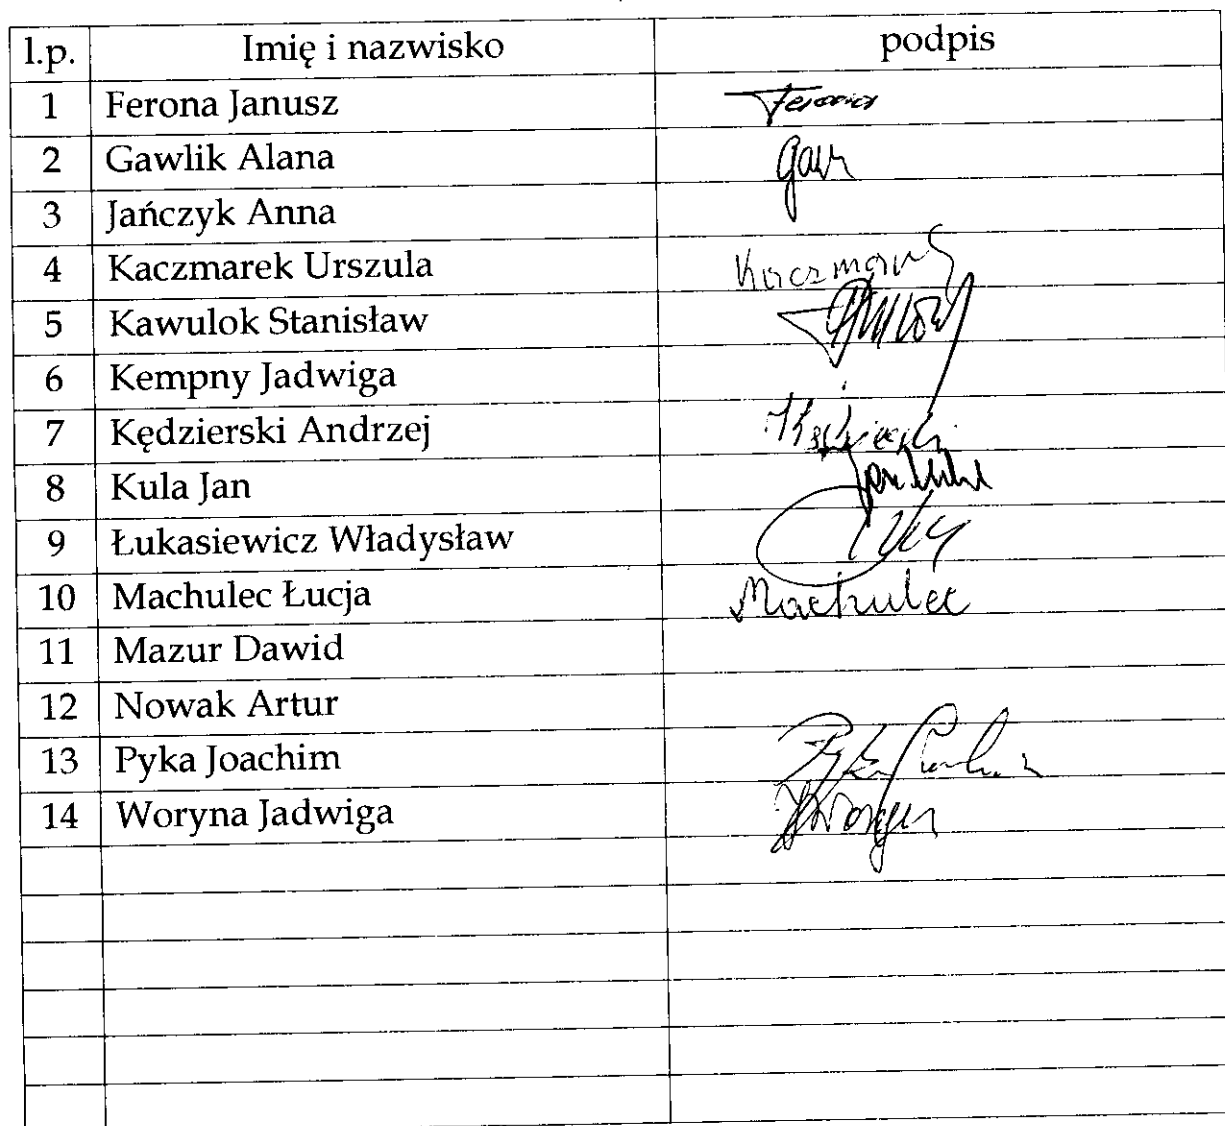 l.p. Imię i nazwisko podpis
1 Ferona Janusz Ferona
2 Gawlik Alana Gaw
3 Jańczyk Anna
4 Kaczmarek Urszula Kaczmarek
5 Kawulok Stanisław
6 Kempny Jadwiga
7 Kędzierski Andrzej
8 Kula Jan
9 Łukasiewicz Władysław
10 Machulec Łucja Machulec
11 Mazur Dawid
12 Nowak Artur
13 Pyka Joachim
14 Woryna Jadwiga